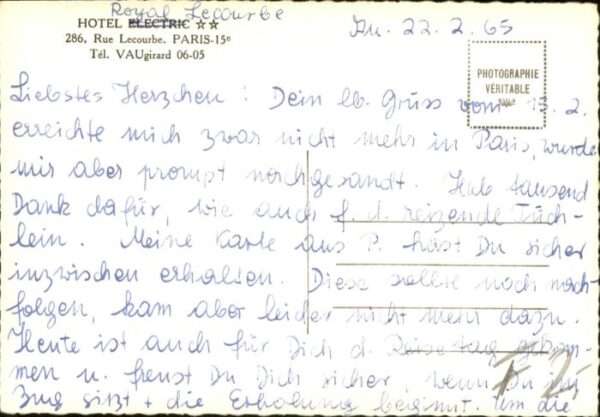 Royal Lecourbe
HOTEL ELECTRIC ★★
286, Rue Lecourbe. PARIS-15e
Tél. VAUgirard 06-05
22.2.65
PHOTOGRAPHIE
VÉRITABLE
Liebstes Herzchen! Dein lb. Gruss vom 13.2.
erreichte mich zwar nicht mehr in Paris, wurde
mir aber prompt nachgesandt. Hab tausend
Dank dafür, wie auch f. d. reizende Tüch-
lein. Meine Karte aus P. hast Du sicher
inzwischen erhalten. Diese sollte noch nach-
folgen, kam aber leider nicht mehr dazu.
Heute ist auch für Dich d. Reisetag gekom-
men u. freust Du Dich sicher, wenn Du im
Zug sitzt + die Erholung beginnt. Um die